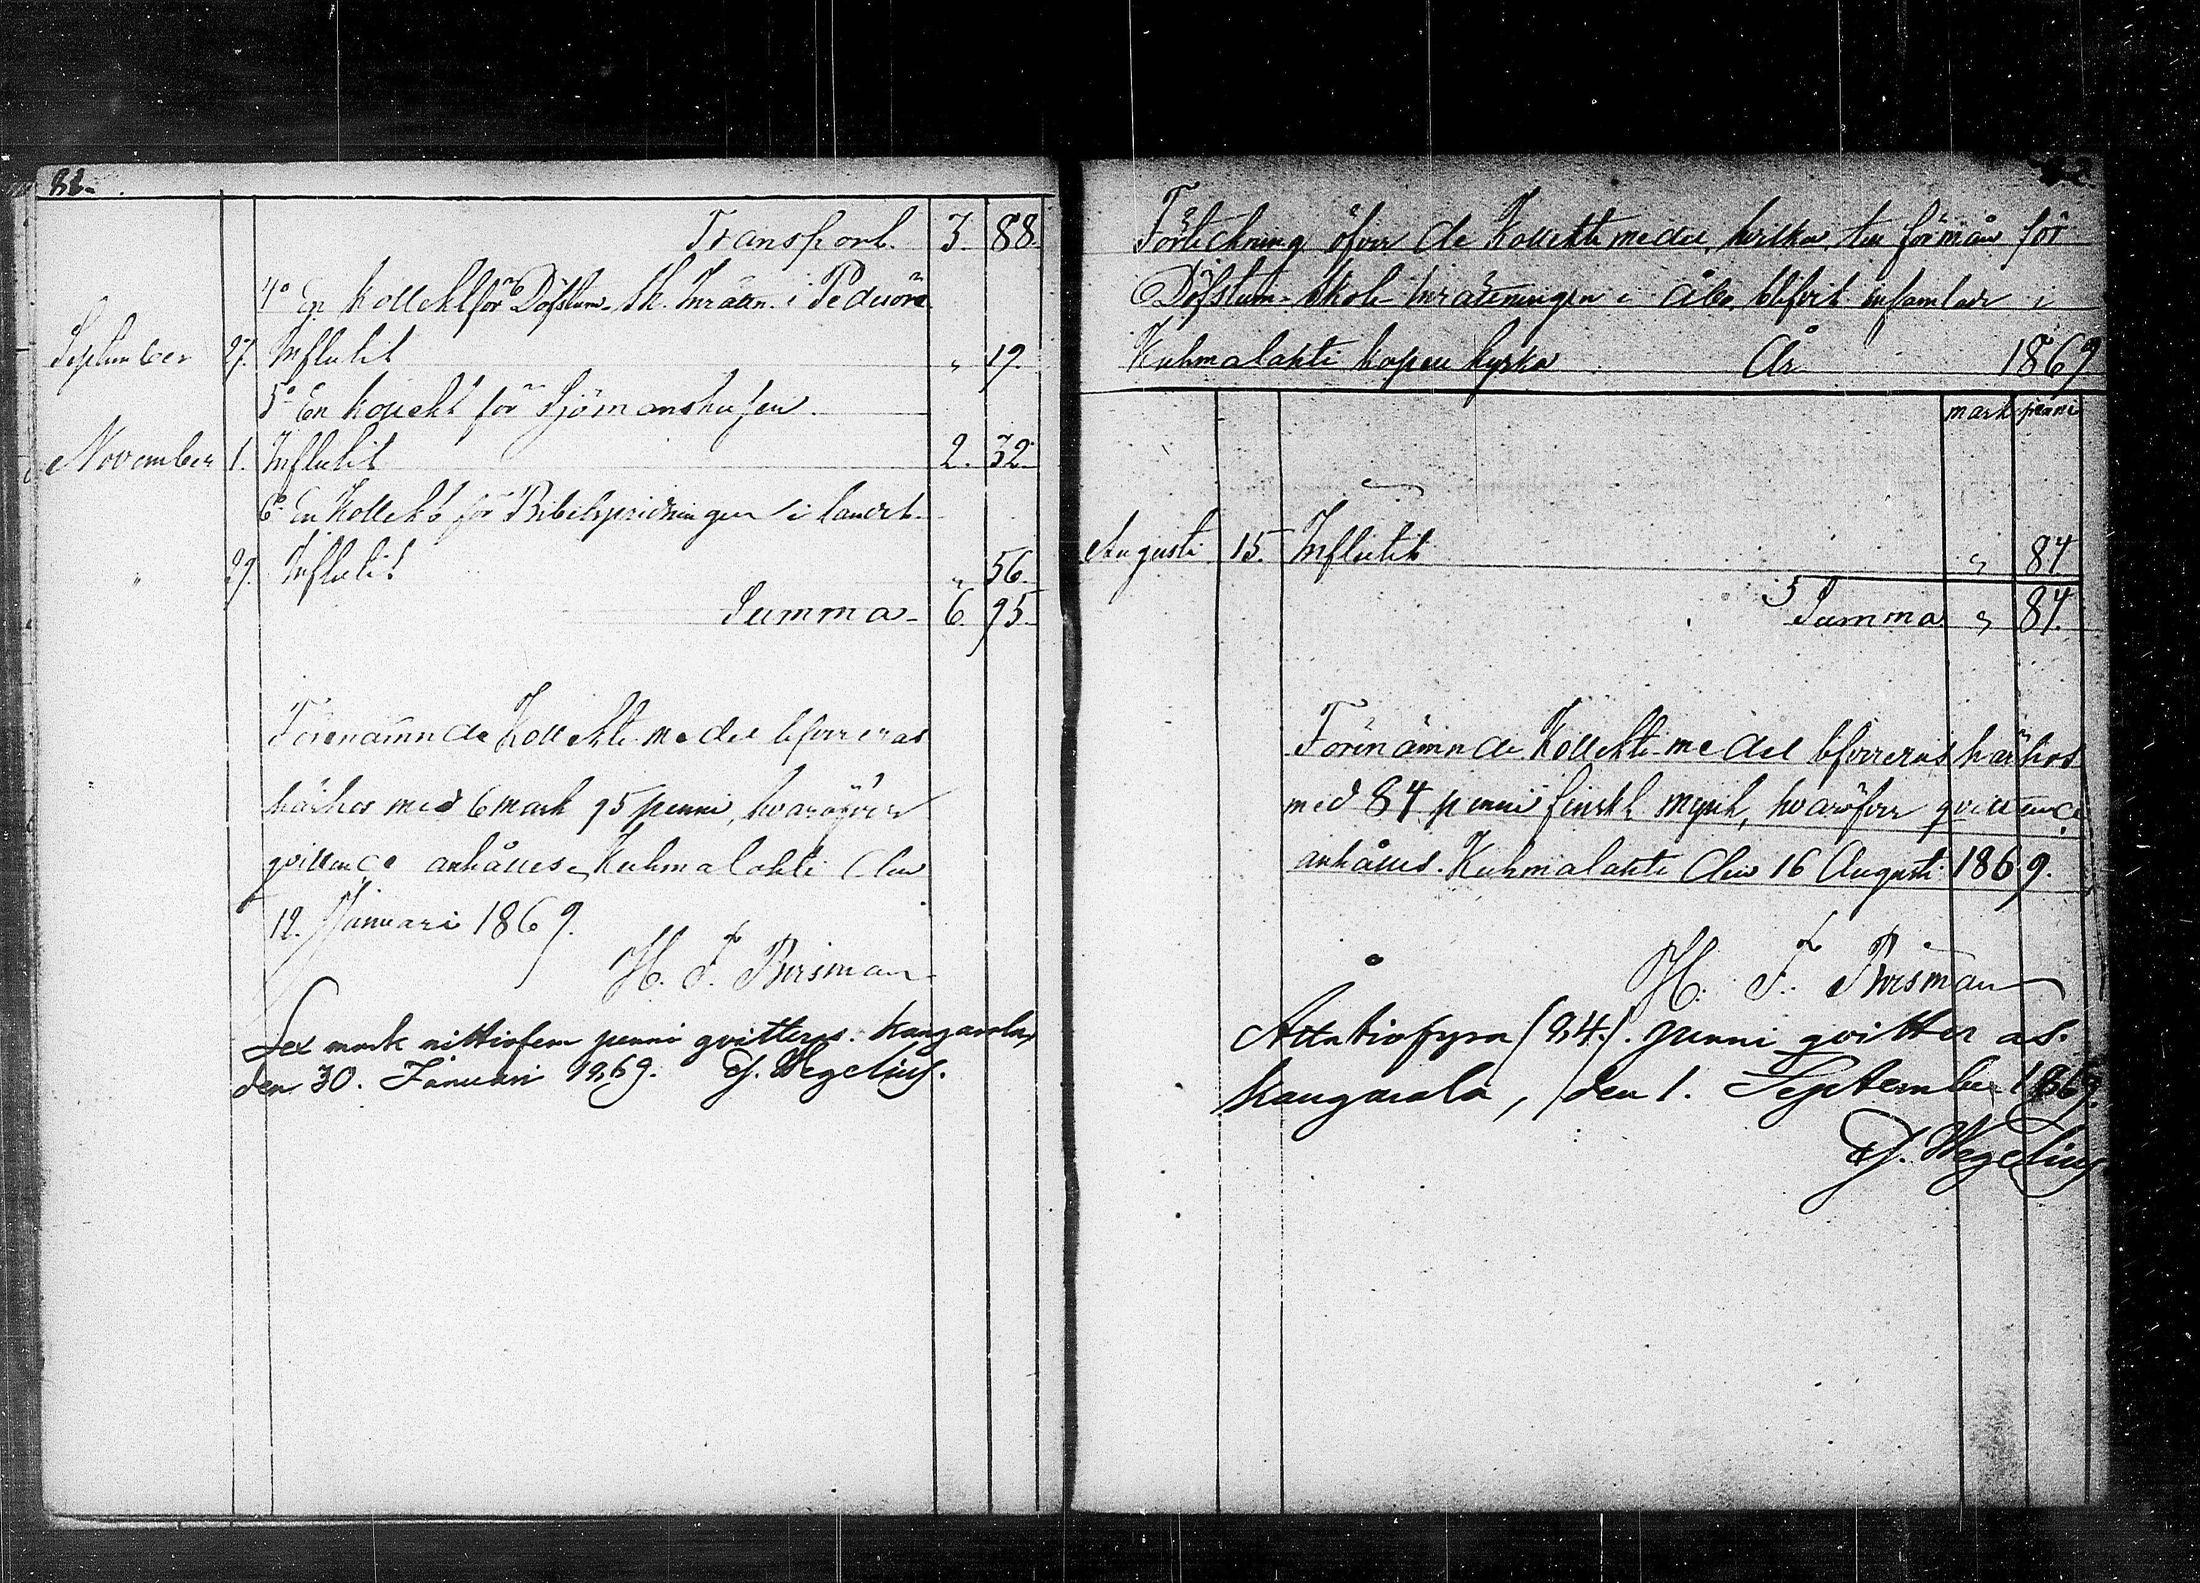 Transport. 3. 88.
4o En Kollekt för Döfstum. Sk. Inrättn. i Pedersöre
September 27. Influtit " 19.
5o En kollekt för Sjömanshusen.
November 1. Influtit 2. 32.
6o En Kollekt för Bibelspridningen i landet.
" 29. Influtit " 56.
Summa 6. 95.
Förenämnde Kollekte medel lefvereras
härhos med 6 mark 95 penni, hvaröfver
qvittence anhålles, Kuhmalahti den
12. Januari 1869.
H. F. Borsman
Sex mark nittiofem penni qvitteras. Kangasala,
den 30. Januari 1869. Wegelius.
Förteckning öfver de Kollektmedel, hvilka, till förmån för
Döfstum-Skole Inrättningen i Åbo, blifvit insamlade i
Kuhmalahti kapell kyrka År 1869
mark penni
Augusti 15. Influtit " 84
Summa " 84.
Förenämnde Kollekte medel lefvereras härhos
med 84 penni finskt mynt, hvaröfver qvittence
anhålles. Kuhmalahti den 16 Augusti 1869.
H. F. Borsman
Åttatiofyra (84.) penni qvitteras.
Kangasala, den 1. September 1869.
Wegelius